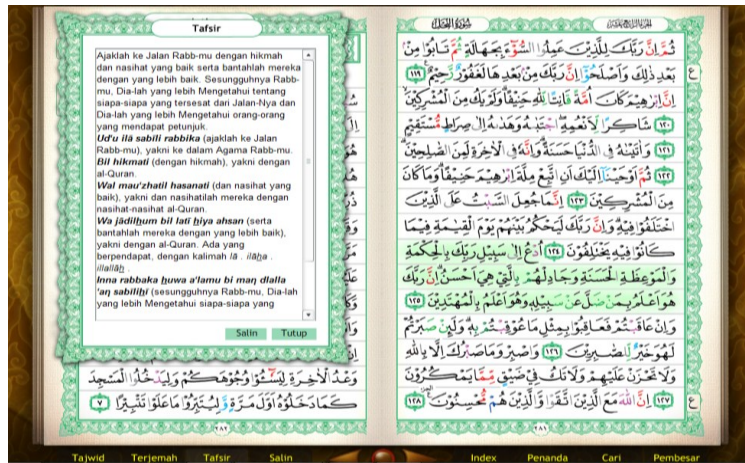 Tafsir
Ajaklah ke Jalan Rabb-mu dengan hikmah
dan nasihat yang baik serta bantahlah mereka
dengan yang lebih baik. Sesungguhnya Rabb-
mu, Dia-lah yang lebih Mengetahui tentang
siapa-siapa yang tersesat dari Jalan-Nya dan
Dia-lah yang lebih Mengetahui orang-orang
yang mendapat petunjuk.
Ud'u ilā sabīli rabbika (ajaklah ke Jalan
Rabb-mu), yakni ke dalam Agama Rabb-mu.
Bil hikmati (dengan hikmah), yakni dengan
al-Quran.
Wal mau'zhatil hasanati (dan nasihat yang
baik), yakni dan nasihatilah mereka dengan
nasihat-nasihat al-Quran.
Wa jādilhum bil latī hiya ahsan (serta
bantahlah mereka dengan yang lebih baik),
yakni dengan al-Quran. Ada yang
berpendapat, dengan kalimah lā . ilāha .
illallāh .
Inna rabbaka huwa a'lamu bi maŋ dlalla
'aŋ sabīlihī (sesungguhnya Rabb-mu, Dia-lah
yang lebih Mengetahui siapa-siapa yang
Salin Tutup
وَعْدُ الْآخِرَةِ لِيَسُـۤٔوْا وُجُوْهَكُمْ وَلِيَدْخُلُوا الْمَسْجِدَ
كَمَا دَخَلُوْهُ اَوَّلَ مَرَّةٍ وَّلِيُتَبِّرُوْا مَا عَلَوْا تَتْبِيْرًا ٧
٢٨٢
سُوْرَةُ النَّحْل
ثُمَّ اِنَّ رَبَّكَ لِلَّذِيْنَ عَمِلُوا السُّوْۤءَ بِجَهَالَةٍ ثُمَّ تَابُوْا مِنْۢ
بَعْدِ ذٰلِكَ وَاَصْلَحُوْٓا اِنَّ رَبَّكَ مِنْۢ بَعْدِهَا لَغَفُوْرٌ رَّحِيْمٌ ١١٩ ع
اِنَّ اِبْرٰهِيْمَ كَانَ اُمَّةً قَانِتًا لِّلّٰهِ حَنِيْفًا وَلَمْ يَكُ مِنَ الْمُشْرِكِيْنَ
١٢٠ شَاكِرًا لِّاَنْعُمِهٖ اِجْتَبٰىهُ وَهَدٰىهُ اِلٰى صِرَاطٍ مُّسْتَقِيْمٍ
١٢١ وَاٰتَيْنٰهُ فِى الدُّنْيَا حَسَنَةً وَاِنَّهٗ فِى الْاٰخِرَةِ لَمِنَ الصّٰلِحِيْنَ
١٢٢ ثُمَّ اَوْحَيْنَآ اِلَيْكَ اَنِ اتَّبِعْ مِلَّةَ اِبْرٰهِيْمَ حَنِيْفًا وَمَا كَانَ
مِنَ الْمُشْرِكِيْنَ ١٢٣ اِنَّمَا جُعِلَ السَّبْتُ عَلَى الَّذِيْنَ
اخْتَلَفُوْا فِيْهِ وَاِنَّ رَبَّكَ لَيَحْكُمُ بَيْنَهُمْ يَوْمَ الْقِيٰمَةِ فِيْمَا
كَانُوْا فِيْهِ يَخْتَلِفُوْنَ ١٢٤ اُدْعُ اِلٰى سَبِيْلِ رَبِّكَ بِالْحِكْمَةِ
وَالْمَوْعِظَةِ الْحَسَنَةِ وَجَادِلْهُمْ بِالَّتِيْ هِيَ اَحْسَنُ اِنَّ رَبَّكَ
هُوَ اَعْلَمُ بِمَنْ ضَلَّ عَنْ سَبِيْلِهٖ وَهُوَ اَعْلَمُ بِالْمُهْتَدِيْنَ ١٢٥
وَاِنْ عَاقَبْتُمْ فَعَاقِبُوْا بِمِثْلِ مَا عُوْقِبْتُمْ بِهٖ وَلَىِٕنْ صَبَرْتُمْ
لَهُوَ خَيْرٌ لِّلصّٰبِرِيْنَ ١٢٦ وَاصْبِرْ وَمَا صَبْرُكَ اِلَّا بِاللّٰهِ
وَلَا تَحْزَنْ عَلَيْهِمْ وَلَا تَكُ فِيْ ضَيْقٍ مِّمَّا يَمْكُرُوْنَ
١٢٧ اِنَّ اللّٰهَ مَعَ الَّذِيْنَ اتَّقَوْا وَّالَّذِيْنَ هُمْ مُّحْسِنُوْنَ ١٢٨ ع
٢٨١
Tajwid Terjemah Tafsir Salin Index Penanda Cari Pembesar